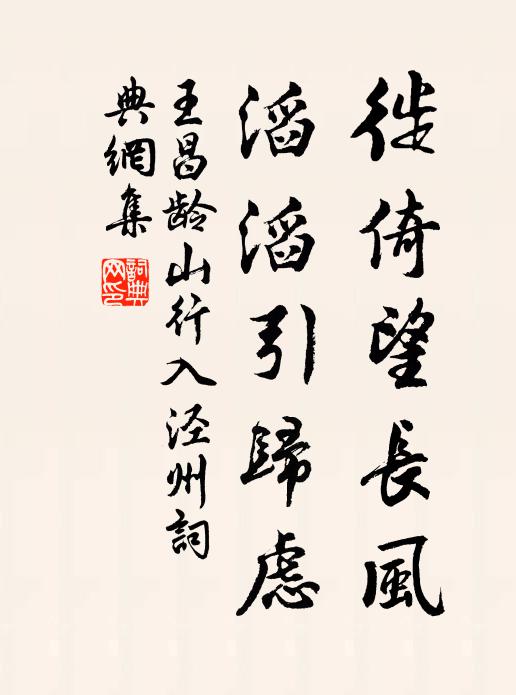 徙倚望長風
滔滔引歸慮
王昌龄山行入泾州詞
典網集
詞典
网印